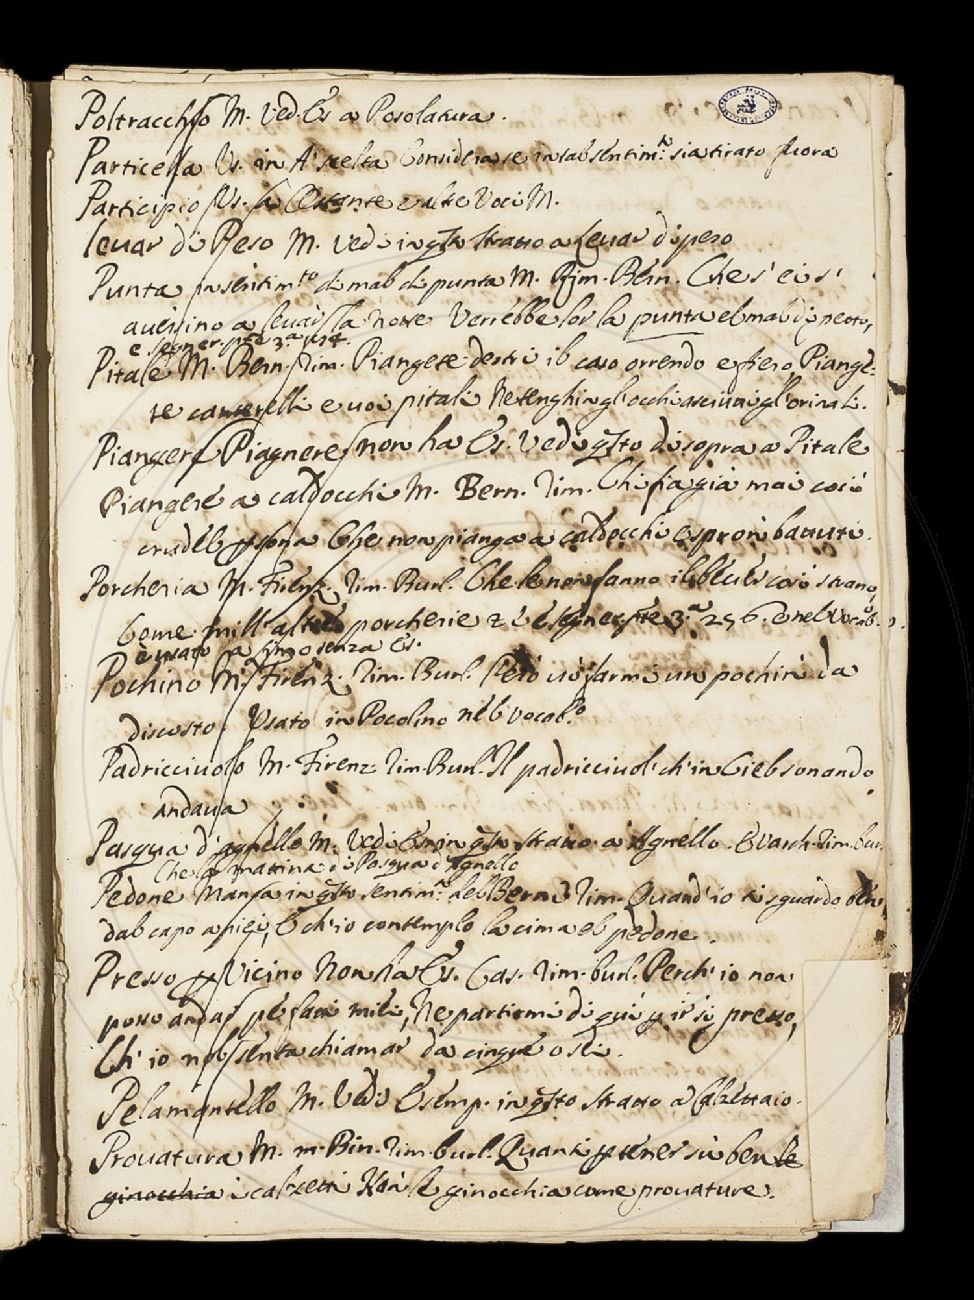 Poltracchio M. Ved. Es a Posolatura.
Particella Es. in A scelta Considerare in tal sentim.to sia tirato fuora
Participio Es. fa e altre Voci M.
Levar di Peso M. vedi in qsto stratto a Levar di peso
Punta in sentim.to di mal di punta M. Rim. Bern. Che s' ei s'
avessino a levar la notte Verrebbe lor la punta e'l mal di petto,
e Segner. pte 3.a
Pitale M. Bern. Rim. Piangete destri il caso orrendo e fiero Piange-
te canterelli e voi pitali Ne tenghin gl'occhi asciutti gl'orinali.
Piangere Piagnere non ha Es. Vedi qsto di sopra a Pitale
Piangere a cald'occhi M. Bern. Rim. Chi fia già mai così
crudel psona Che non pianga a cald'occhi e spron battuti.
Porcheria M. Firenz. Rim. Burl. Che le non fanno il bere così strano,
Come mill' altre porcherie e Segner. pte 3.a 256. e nel Vocab.o
è usato senza Es.
Pochino M. Firenz. Rim. Burl. Però vo' farmi un pochin da
discosto. Usato in Pocolino nel vocab.o
Padricciuolo M. Firenz. Rim. Burl. Il padricciuol' ch' in Ciel sonando
andava
Pasqua d'agnello M. Vedi Es in qsto stratto a Agnello. E Varch. Rim. bur.
Che la mattina di Pasqua d'Agnello
Pedone Manca in qsto sentim.to del Berni Rim. Quand' io ti sguardo ben
dal capo a piei, E ch'io contemplo la cima e'l pedone.
Presso p Vicino Non ha Es. Cas. Rim. burl. Perch' io non
posso andar pe fatti miei, Ne partirmi di qui p ir sì presso,
Ch' io nol senta chiamar da cinque o sei.
Pelamantello M. Vedi Esemp. in qsto stratto a Calzettaio.
Provatura M. m. Bin. Rim. burl. Quanti p tener su ben le
ginocchia i calzetti Han le ginocchia come provature.